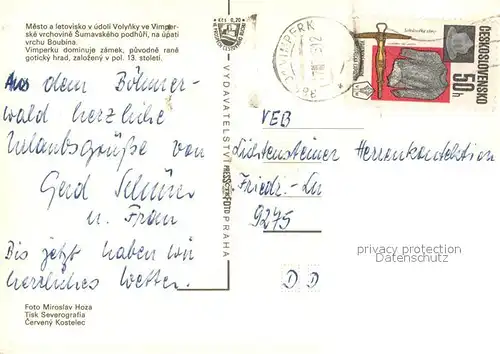 Město a letovisko v údolí Volyňky ve Vimper-
ské vrchovině Šumavského podhůří, na úpatí
vrchu Boubína.
Vimperku dominuje zámek, původně raně
gotický hrad, založený v pol. 13. století.
Aus dem Böhmer-
wald herzliche
Urlaubsgrüße von
Gerd
u. Frau
Bis jetzt haben wir
herrliches Wetter.
Foto Miroslav Hoza
Tisk Severografia
Červený Kostelec
Kčs 0,20
VYDAVATELSTVÍ PRESSFOTO PRAHA
VIMPERK
ČESKOSLOVENSKO
50h
VEB
Lichtensteiner Herrenkonfektion
Friedr.-
9275
DD
privacy protection
AnsichtskartenHandel.com